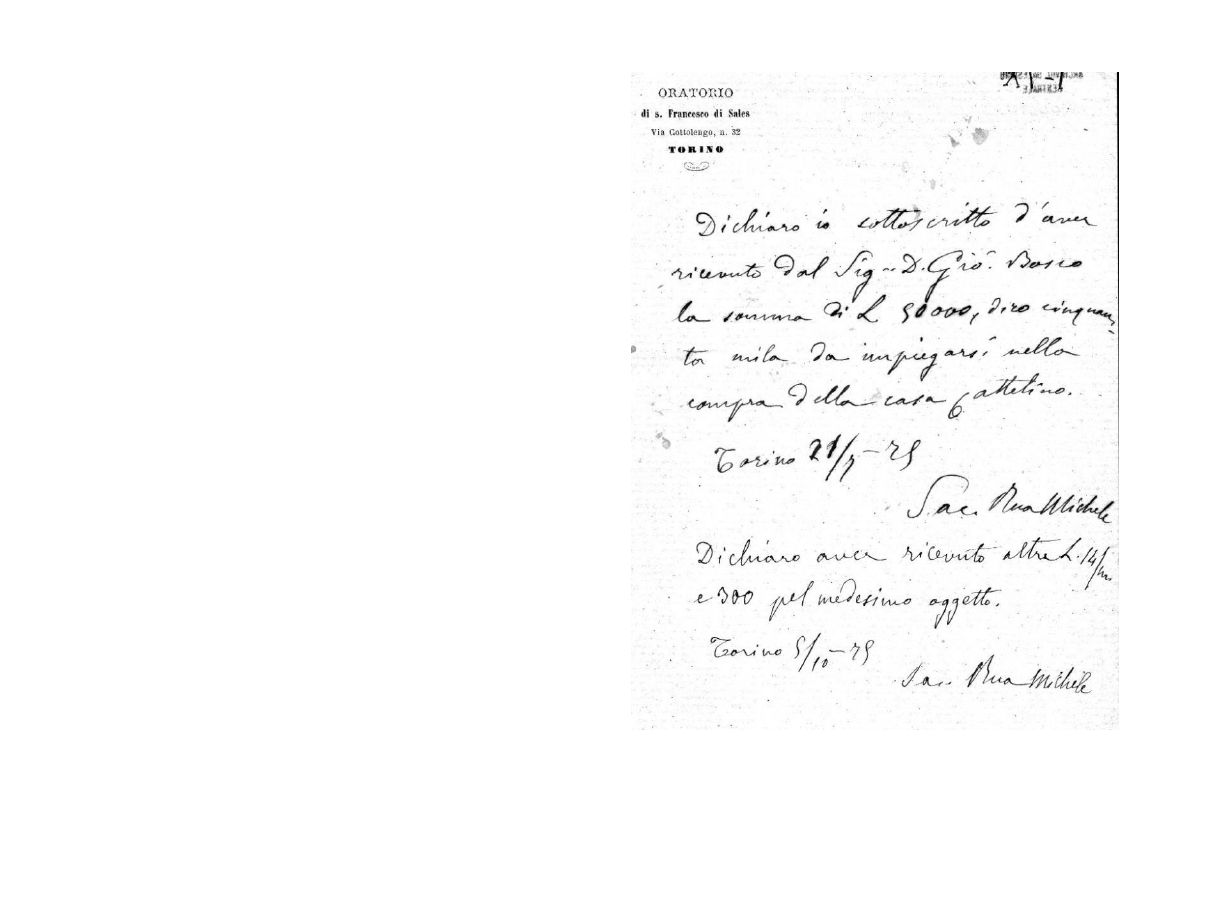 ORATORIO
di s. Francesco di Sales
Via Cottolengo, n. 32
TORINO
Dichiaro io sottoscritto d'aver
ricevuto dal Sig.. D. Gio. Bosco
la somma di L 50000, diro cinquan-
ta mila da impiegarsi nella
compra della casa Cattelino.
Torino 21/7 – 75
Sac. Rua Michele
Dichiaro aver ricevuto altre L. 14/m.
e 300 pel medesimo oggetto.
Torino 5/10 – 75
Sac. Rua Michele